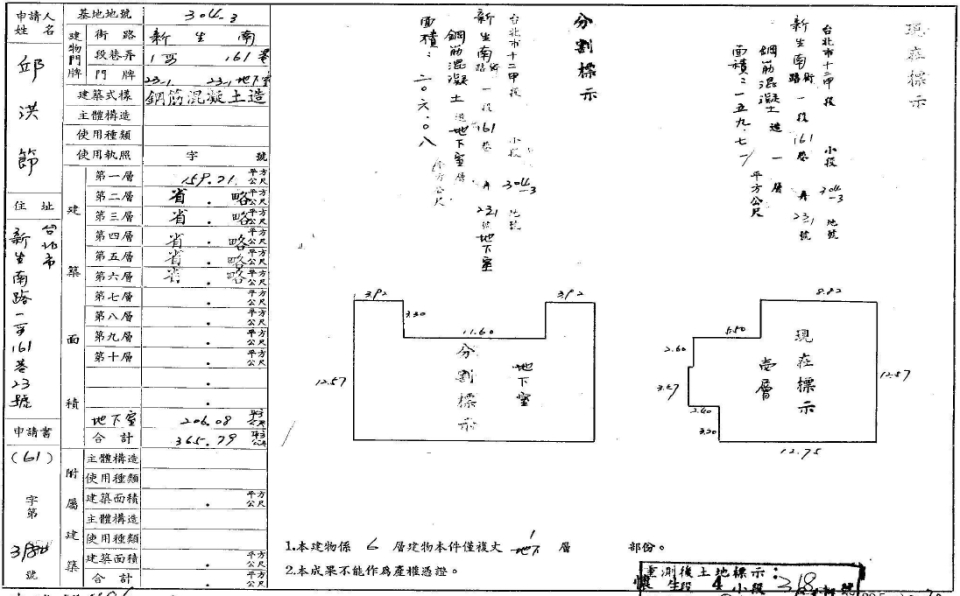 申請人
姓 名
邱洪節
住 址
台北市
新生南路一段161巷23號
申請書
(61)
字第
號
基地地號 304-3
建物門牌
街 路 新 生 南
段巷弄 1段 161巷
門 牌 23-1 23-1地下室
建築式樣 鋼筋混凝土造
主體構造
使用種類
使用執照 字 號
建築面積
第一層 159.71 平方公尺
第二層 省.略 平方公尺
第三層 省.略 平方公尺
第四層 省.略 平方公尺
第五層 省.略 平方公尺
第六層 省.略 平方公尺
第七層 . 平方公尺
第八層 . 平方公尺
第九層 . 平方公尺
第十層 . 平方公尺
地下室 206.08 平方公尺
合 計 365.79 平方公尺
附屬建築
主體構造
使用種類
建築面積 . 平方公尺
主體構造
使用種類
建築面積 . 平方公尺
合 計 . 平方公尺
現在標示
台北市十二甲段 小段 304-3 地號
新生南路街 一段 161 巷 弄 23-1 號
鋼筋混凝土造 一層
面積:一五九.七一平方公尺
分割標示
台北市十二甲段 小段 304-3 地號
新生南路街 一段 161 巷 弄 23-1 號地下室
鋼筋混凝土造地下室層
面積:二〇六.〇八平方公尺
3.92
3.92
3.30
11.60
12.57
分割標示
地下室
8.82
5.50
2.60
3.67
2.40
3.20
12.75
12.57
現在標示
壹層
1.本建物係 6 層建物本件僅複丈 1 地下 層 部份。
2.本成果不能作為產權憑證。
重測後土地標示:
懷生段 4 小段 318 地號